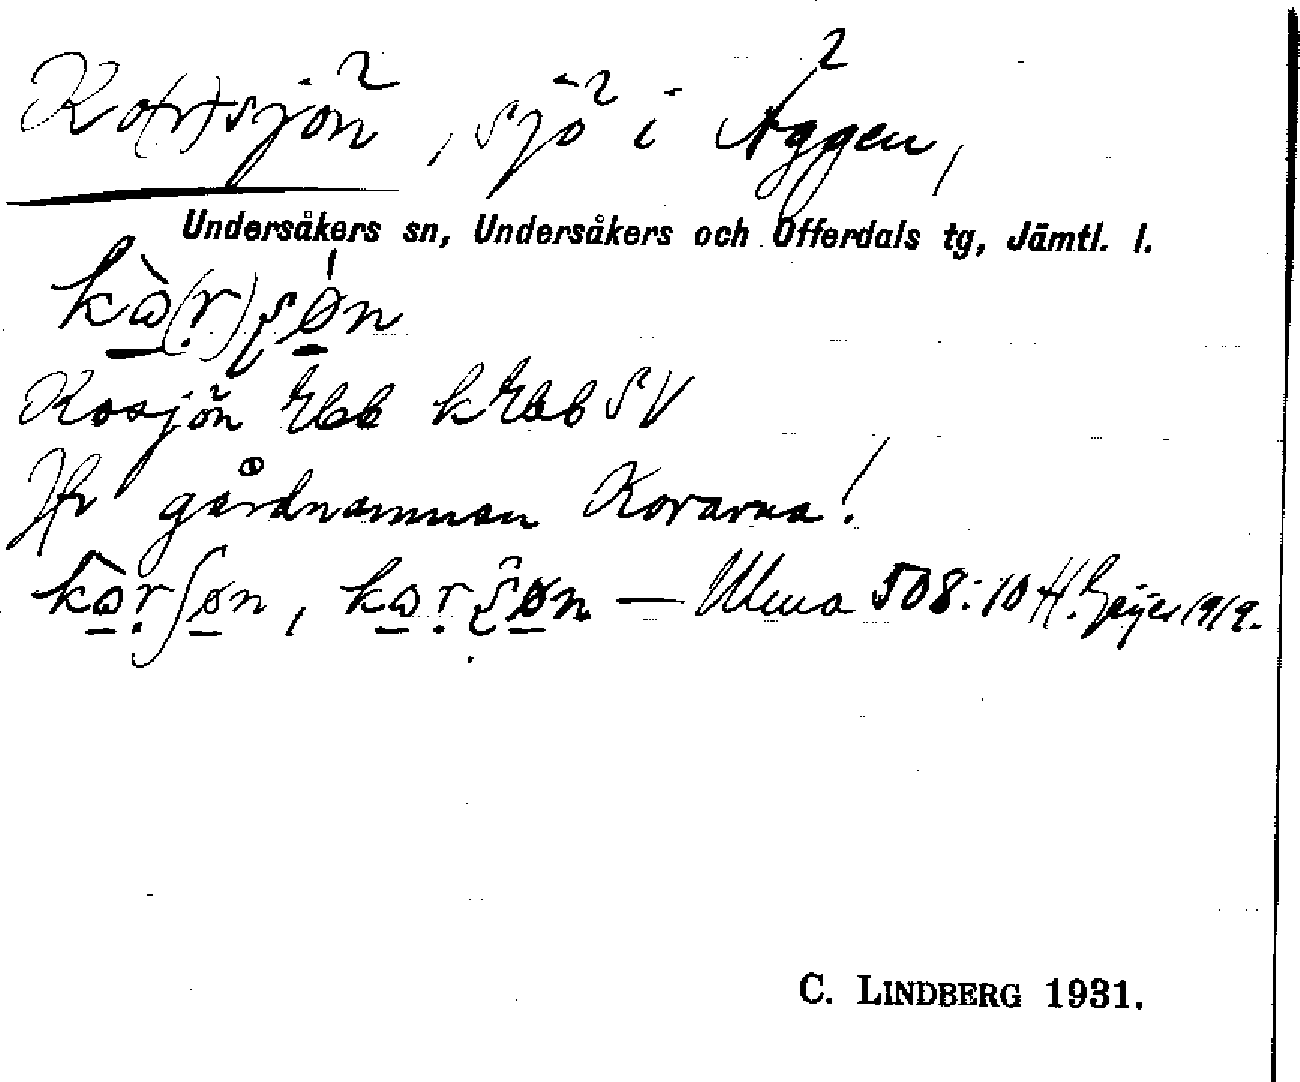 Ko(r)sjön, sjö i Äggen,
Undersåkers sn, Undersåkers och Offerdals tg, Jämtl. l.
kò(r)søn
Kosjön Ebb kEbb SV
Jfr gårdnamnen Korarna!
kòrʃøn, korsøn — Ulma 508:10 H. Geijer 1919.
C. LINDBERG 1931.